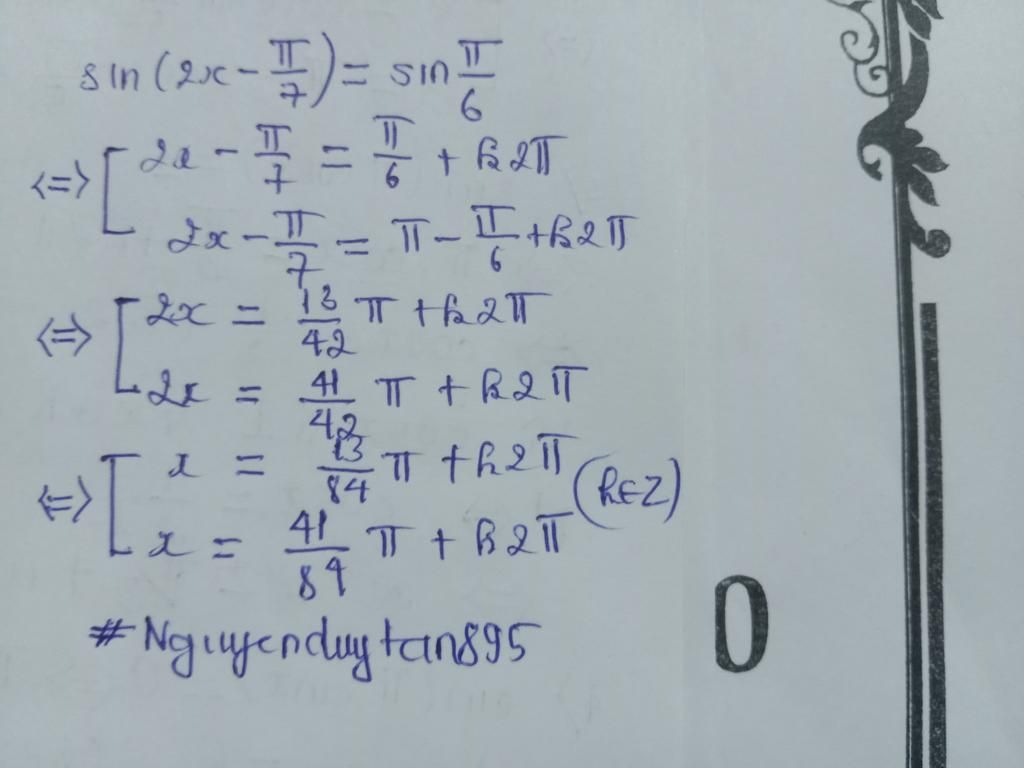 sin(2x - π/7) = sin π/6
<=> [ 2x - π/7 = π/6 + k2π
2x - π/7 = π - π/6 + k2π
<=> [ 2x = 13/42 π + k2π
2x = 41/42 π + k2π
<=> [ x = 13/84 π + k2π
(k∈Z)
x = 41/84 π + k2π
# Nguyenduytan895
0